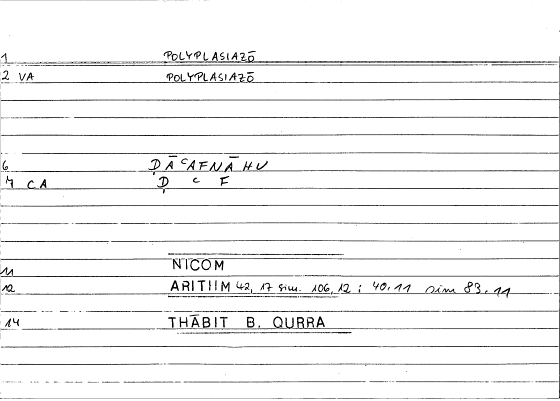 1 POLYPLASIAZŌ
2 VA POLYPLASIAZŌ
6 ḌĀᶜAFNĀHU
7 CA Ḍ ᶜ F
11 NICOM
12 ARITIIM 42, 17 sim. 106, 12 ; 40.11 sim 83.11
14 THĀBIT B. QURRA